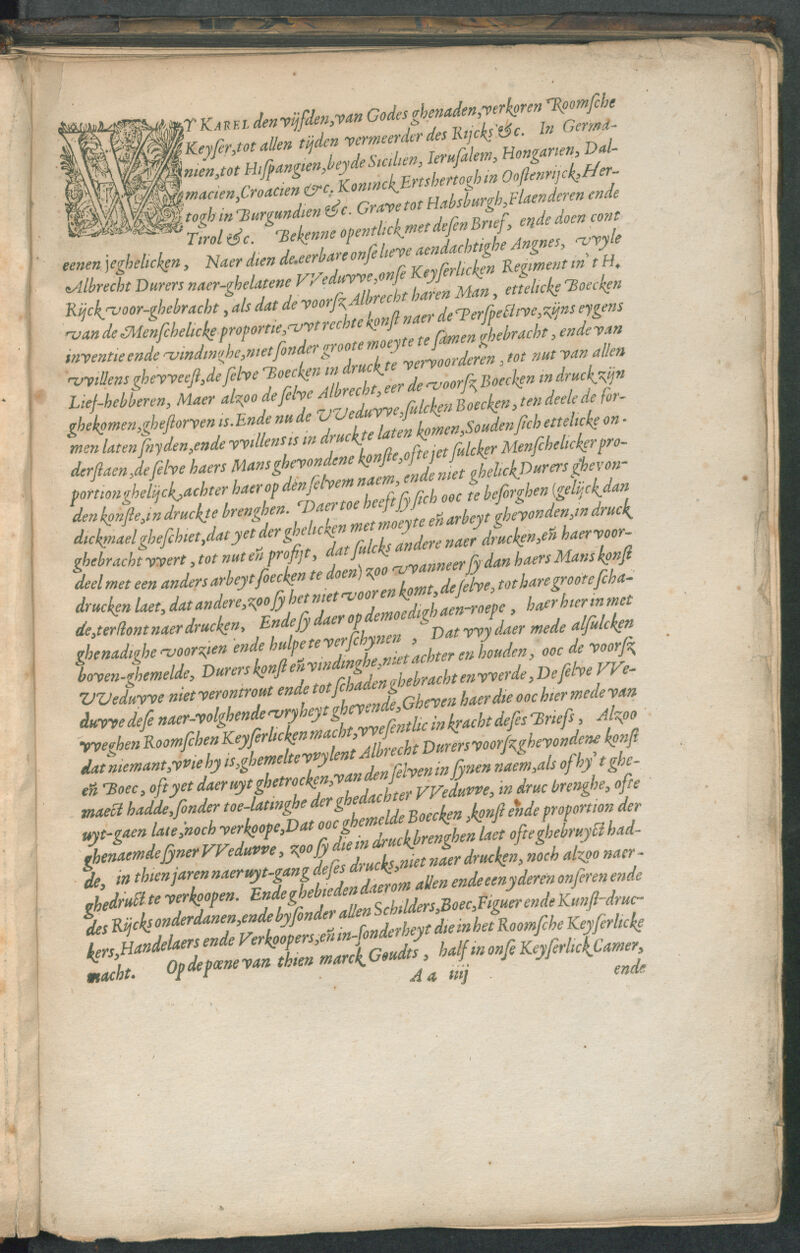 WY KAREL den vijfden, van Godes ghenaden, verkoren Roomsche
Keyser, tot allen tijden vermeerder des Rijcks &c. In Germa-
nien, tot Hispangien, beyde Sicilien, Ierusalem, Hongarien, Dal-
macien, Croacien &c. Koninck, Ertshertogh in Oostenrijck, Her-
togh in Burgundien &c. Grave tot Habsburgh, Flaenderen ende
Tirol &c. Bekenne opentlick met desen Brief, ende doen cont
eenen jeghelicken, Naer dien de eerbare onse lieve aendachtighe Angnes, vvyle
Albrecht Durers naer-ghelatene VVeduvve, onse Keyserlicken Regiment in 't H.
Rijck voor-ghebracht, als dat de voorsz Albrecht haren Man, ettelicke Boecken
van de Menschelicke proportie, vvt rechte konst naer de Perspectivve, zijns eygens
inventie ende vindinghe, niet sonder groote moeyte te samen ghebracht, ende van
vvillens ghevveest, de selve Boecken in druckte vervoorderen, tot nut van allen
Lief-hebberen, Maer alzoo de selve Albrecht, eer de voorsz Boecken in druck zijn
ghekomen, ghestorven is. Ende nu de VVeduvve, sulcken Boecken, ten deele de for-
men laten snyden, ende vvillens is in druckte laten komen, Souden sich ettelicke on-
derstaen, de selve haers Mans ghevondene konste, ofte jet sulcker Menschelicker pro-
portion ghelijck, achter haer op den selvem naem, ende niet ghelick Durers ghevon-
den konste, in druckte brenghen. Daer toe heeft sy sich ooc te besorghen (gelijck dan
dickmael gheschiet, dat yet der ghelicken met moeyte eñ arbeyt ghevonden, in druck
ghebracht vvert, tot nut eñ profijt, dat sulcks andere naer drucken, eñ haer voor-
deel met een anders arbeyt soecken te doen) zoo vvanneer sy dan haers Mans konst
drucken laet, dat andere, zoo sy het niet voor en komt, de selve, tot hare groote scha-
de, terstont naer drucken, Ende sy daer op demoedigh aen-roepe, haer hier in met
ghenadighe voorzien ende hulpe te verschynen, Dat vvy daer mede alsulcken
boven-ghemelde, Durers konst eñ vindinghe, niet achter en houden, ooc de voorsz
VVeduvve niet verontrout ende tot schaden ghebracht en vverde, De selve VVe-
duvve dese naer-volghende vryheyt ghevende, Gheven haer die ooc hier mede van
vveghen Roomschen Keyserlicken macht, vvesentlic in kracht deses Briefs, Alzoo
dat niemant, vvie hy is, ghemelte vvylent Albrecht Durers voorsz ghevondene konst
eñ Boec, oft yet daer uyt ghetrocken, van den selven in synen naem, als of hy 't ghe-
maect hadde, sonder toe-latinghe der ghedachter VVeduvve, in druc brenghe, ofte
uyt-gaen late, noch verkoope, Dat ooc ghemelde Boecken, konst ende proportion der
ghenaemde syner VVeduvve, zoo sy die in druck brenghen laet ofte ghebruyct had-
de, in thien jaren naer uyt-gang deses drucks, niet naer drucken, noch alzoo naer-
ghedruct te verkoopen. Ende ghebieden daerom allen ende een yderen onseren ende
des Rijcks onderdanen, ende by sonder allen Schilders, Boec, Figuer ende Kunst-druc-
kers, Handelaers ende Verkoopers, eñ in-sonderheyt die in het Roomsche Keyserlicke
macht. Op de pœne van thien marck Goudts, half in onse Keyserlick Camer,
A a iiij ende